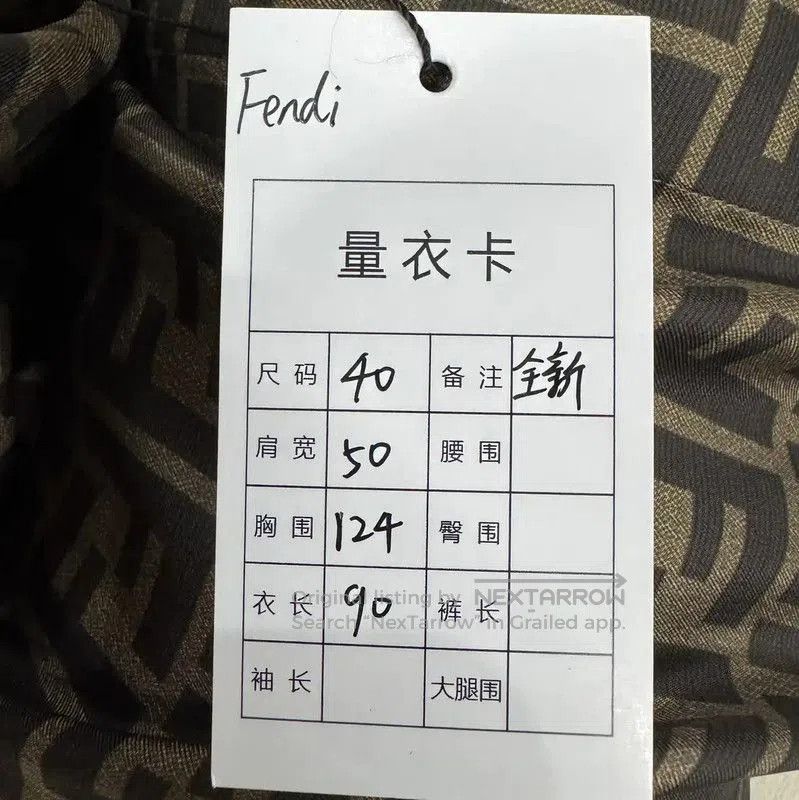 Fendi
量衣卡
尺码 40 备注 全新
肩宽 50 腰围
胸围 124 臀围
衣长 90 裤长
Original listing by NEXTARROW
Search "NexTarrow" in Grailed app.
袖长 大腿围